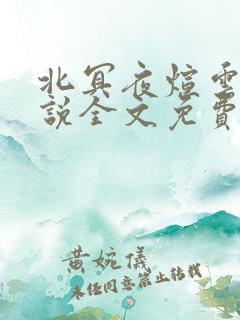 北冥夜煊雲
說全文免費
黄婉儀
未经同意禁止转载